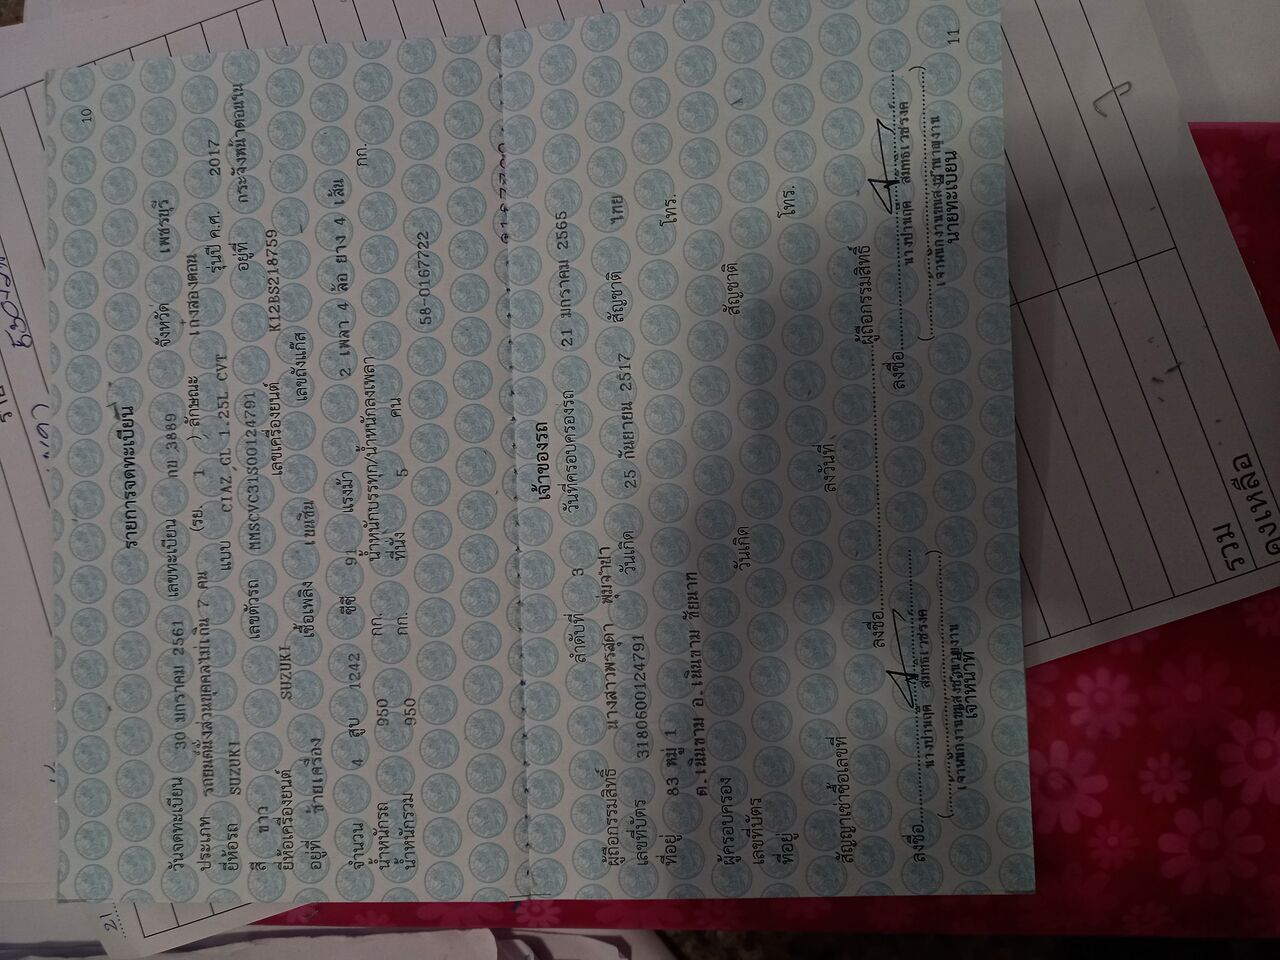 10
รายการจดทะเบียน
วันจดทะเบียน 30 มกราคม 2561 เลขทะเบียน กษ 3889 จังหวัด เพชรบุรี
ประเภท รถยนต์นั่งส่วนบุคคลไม่เกิน 7 คน (รย. 1 ) ลักษณะ เก๋งสองตอน
ยี่ห้อรถ SUZUKI แบบ CIAZ GL 1.25L CVT รุ่นปี ค.ศ. 2017
สี ขาว เลขตัวรถ MMSCVC31S00124791 อยู่ที่ กระจังหน้าตอนใน
ยี่ห้อเครื่องยนต์ SUZUKI เลขเครื่องยนต์ K12BS218759
อยู่ที่ ซ้ายเครื่อง เชื้อเพลิง เบนซิน เลขถังแก๊ส
จำนวน 4 สูบ 1242 ซีซี 91 แรงม้า 2 เพลา 4 ล้อ ยาง 4 เส้น
น้ำหนักรถ 950 กก. น้ำหนักบรรทุก/น้ำหนักลงเพลา กก.
น้ำหนักรวม 950 กก. ที่นั่ง 5 คน
58-0167722
เจ้าของรถ
ลำดับที่ 3 วันที่ครอบครองรถ 21 มกราคม 2565
ผู้ถือกรรมสิทธิ์ นางสาวพรสุดา พุ่มจำปา
เลขที่บัตร 3180600124791 วันเกิด 25 กันยายน 2517 สัญชาติ ไทย
ที่อยู่ 83 หมู่ 1 โทร.
ต.เนินขาม อ.เนินขาม ชัยนาท
ผู้ครอบครอง
เลขที่บัตร วันเกิด สัญชาติ
ที่อยู่ โทร.
สัญญาเช่าซื้อเลขที่ ลงวันที่
ลงชื่อ ผู้ถือกรรมสิทธิ์
ลงชื่อ ลงชื่อ
เจ้าหน้าที่ นายทะเบียน
11
รวม
คงเหลือ
21